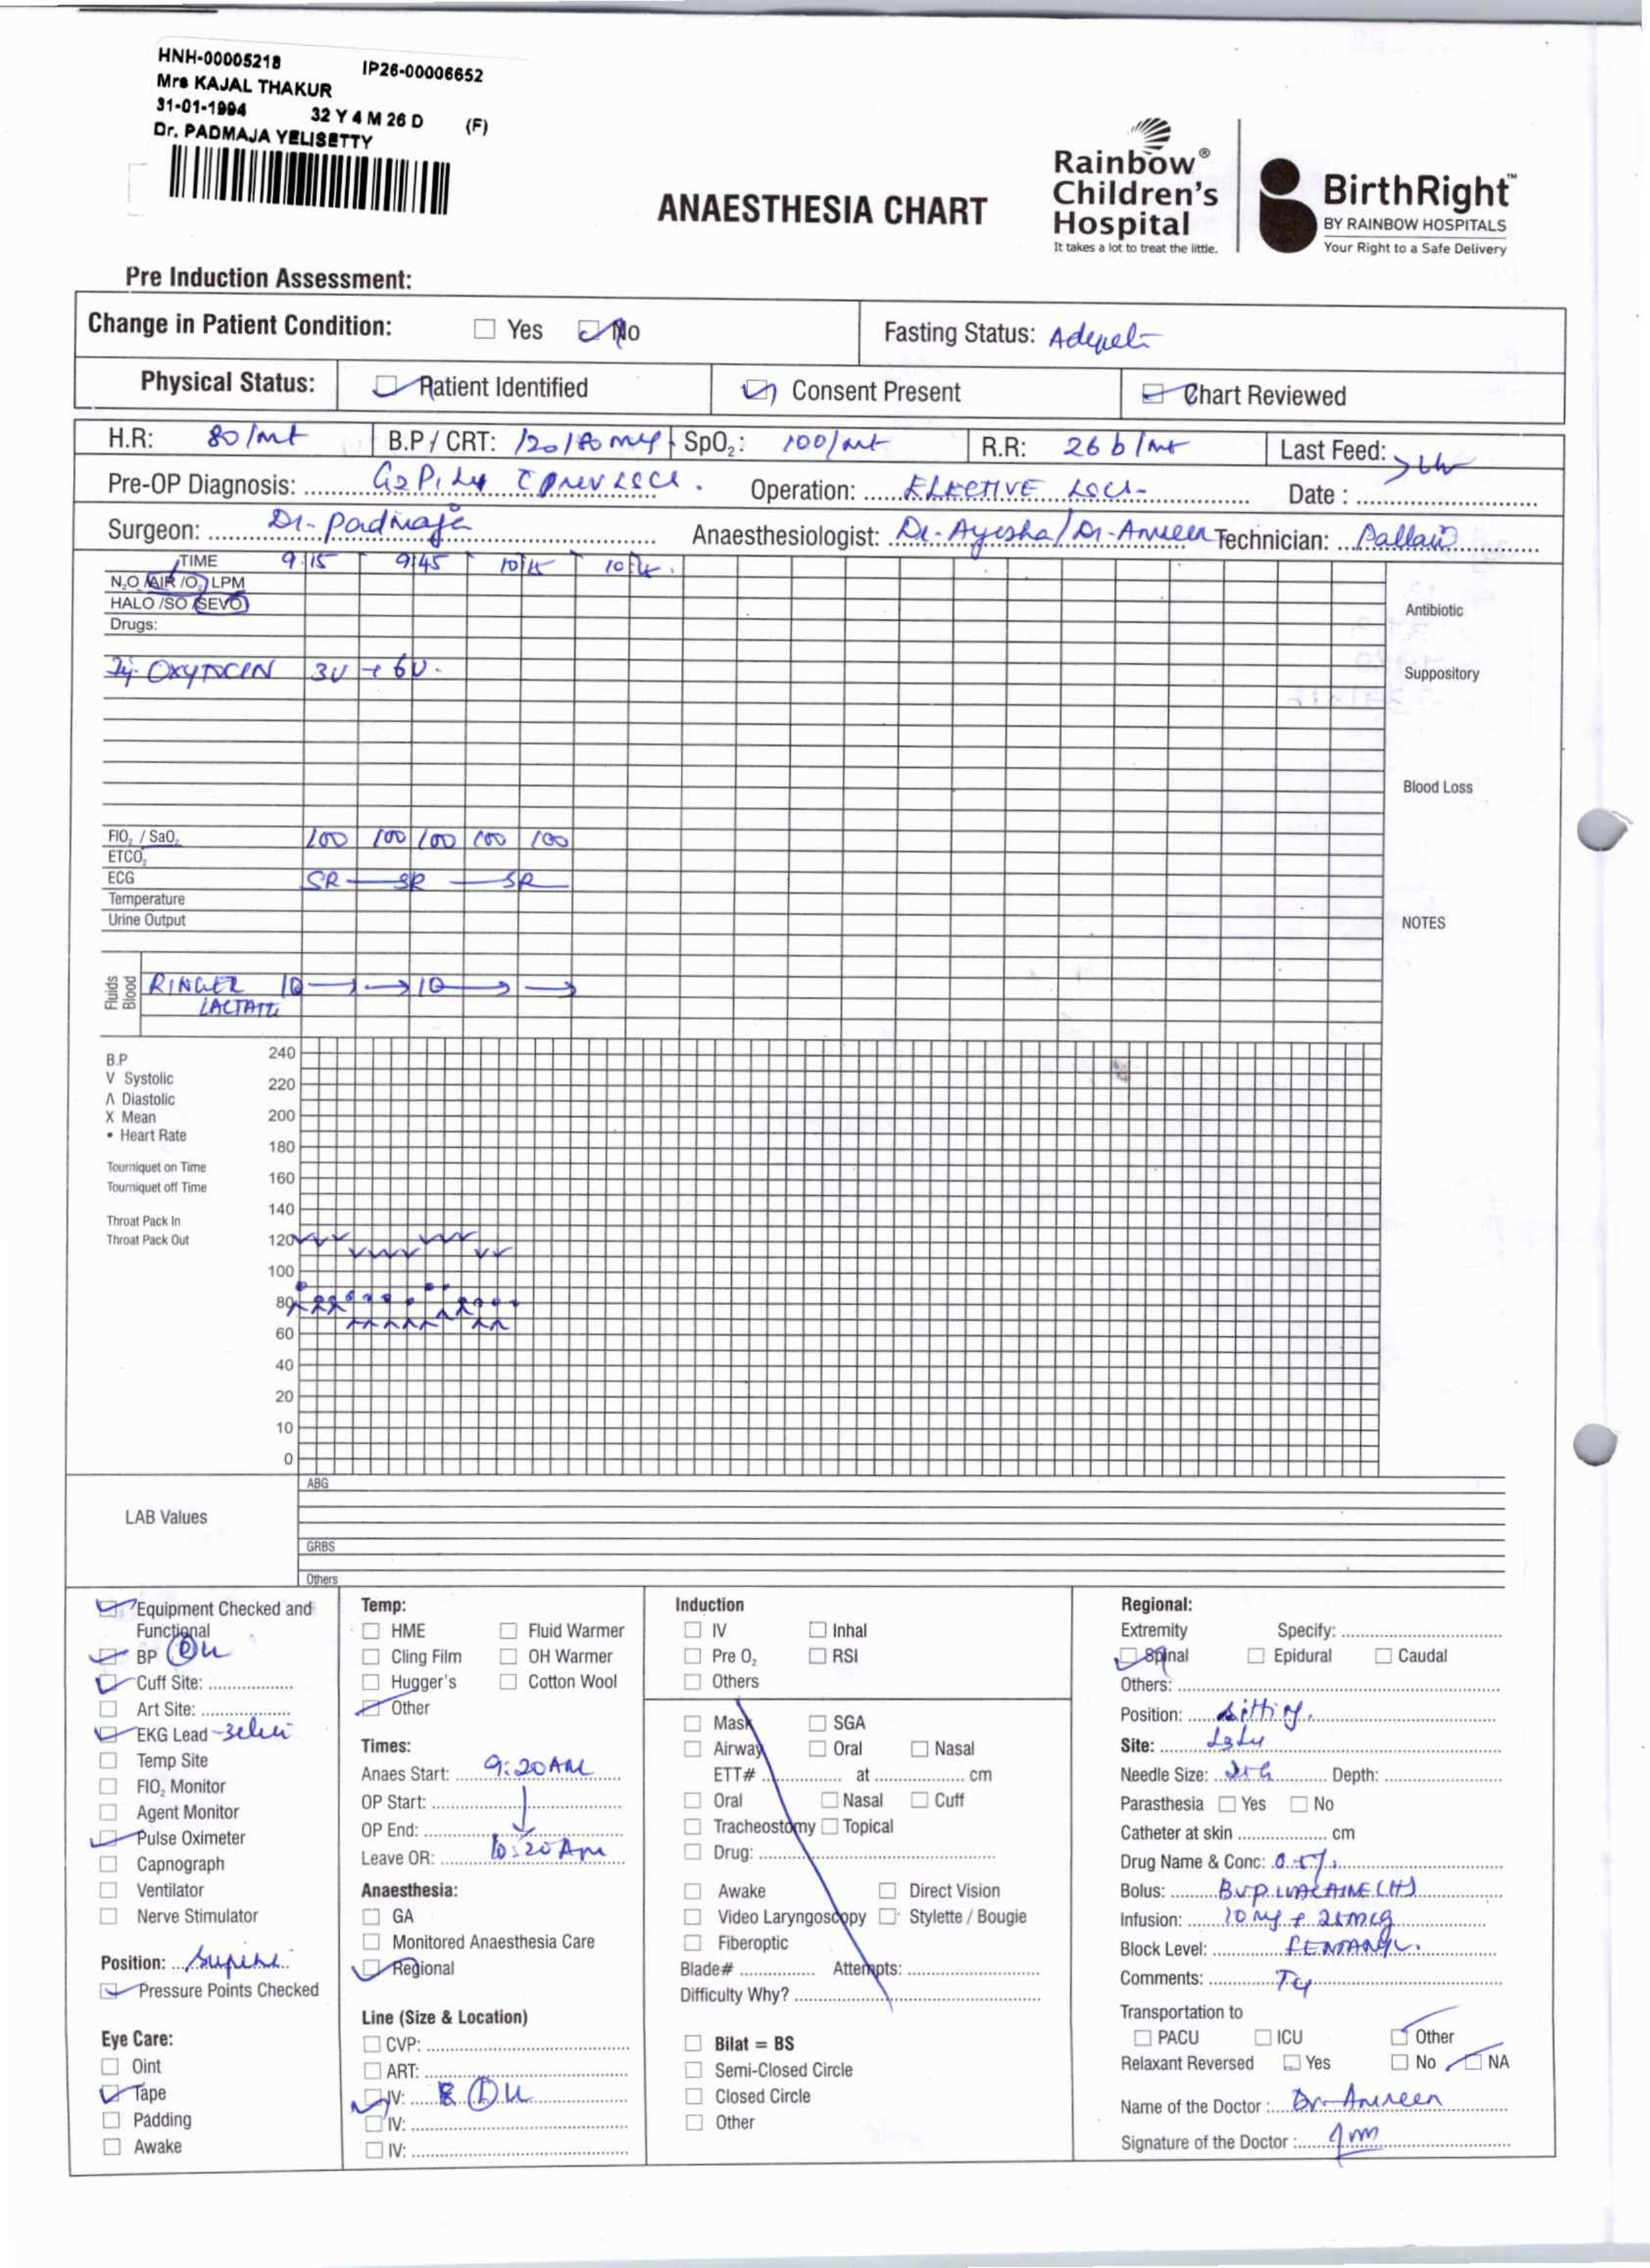 HNH-00005218 IP26-00006652
Mrs KAJAL THAKUR
31-01-1994 32 Y 4 M 26 D (F)
Dr. PADMAJA YELISETTY
ANAESTHESIA CHART
Rainbow®
Children's
Hospital
It takes a lot to treat the little.
BirthRight™
BY RAINBOW HOSPITALS
Your Right to a Safe Delivery
Pre Induction Assessment:
Change in Patient Condition: Yes No Fasting Status:
Physical Status: Patient Identified Consent Present Chart Reviewed
H.R: 80/mt B.P / CRT: 120/80 SpO2: 100/mt R.R: 26 b/mt Last Feed:
Pre-OP Diagnosis: Operation: ELECTIVE LSCS Date :
Surgeon: Dr. Padmaja Anaesthesiologist: Dr. Ayesha / Dr. Amreen Technician: Pallavi
TIME 9:15 9:45 10:15
N2O /AIR /O2 LPM
HALO /SO /SEVO
Antibiotic
Drugs:
Inj. OXYTOCIN 3U + 6U.
Suppository
Blood Loss
FIO2 / SaO2 100 100 100 100 100
ETCO2
ECG SR SR SR
Temperature
Urine Output
NOTES
Fluids
Blood
RINGER
LACTATE
B.P
V Systolic
Λ Diastolic
X Mean
• Heart Rate
Tourniquet on Time
Tourniquet off Time
Throat Pack In
Throat Pack Out
240
220
200
180
160
140
120
100
80
60
40
20
10
0
LAB Values
ABG
GRBS
Others
Equipment Checked and
Functional
BP
Cuff Site:
Art Site:
EKG Lead
Temp Site
FIO2 Monitor
Agent Monitor
Pulse Oximeter
Capnograph
Ventilator
Nerve Stimulator
Position: Supine
Pressure Points Checked
Eye Care:
Oint
Tape
Padding
Awake
Temp:
HME Fluid Warmer
Cling Film OH Warmer
Hugger's Cotton Wool
Other
Times:
Anaes Start: 9:20 AM
OP Start:
OP End:
Leave OR: 10:20 Am
Anaesthesia:
GA
Monitored Anaesthesia Care
Regional
Line (Size & Location)
CVP:
ART:
IV:
IV:
IV:
Induction
IV Inhal
Pre O2 RSI
Others
Mask SGA
Airway Oral Nasal
ETT# at cm
Oral Nasal Cuff
Tracheostomy Topical
Drug:
Awake Direct Vision
Video Laryngoscopy Stylette / Bougie
Fiberoptic
Blade# Attempts:
Difficulty Why?
Bilat = BS
Semi-Closed Circle
Closed Circle
Other
Regional:
Extremity Specify:
Spinal Epidural Caudal
Others:
Position: Sitting.
Site: L3L4
Needle Size: Depth:
Parasthesia Yes No
Catheter at skin cm
Drug Name & Conc: 0.5%
Bolus: BUPIVACAINE (H)
Infusion: 10 mg + 25mcg
Block Level: FENTANYL.
Comments: T4
Transportation to
PACU ICU Other
Relaxant Reversed Yes No NA
Name of the Doctor : Dr. Amreen
Signature of the Doctor :